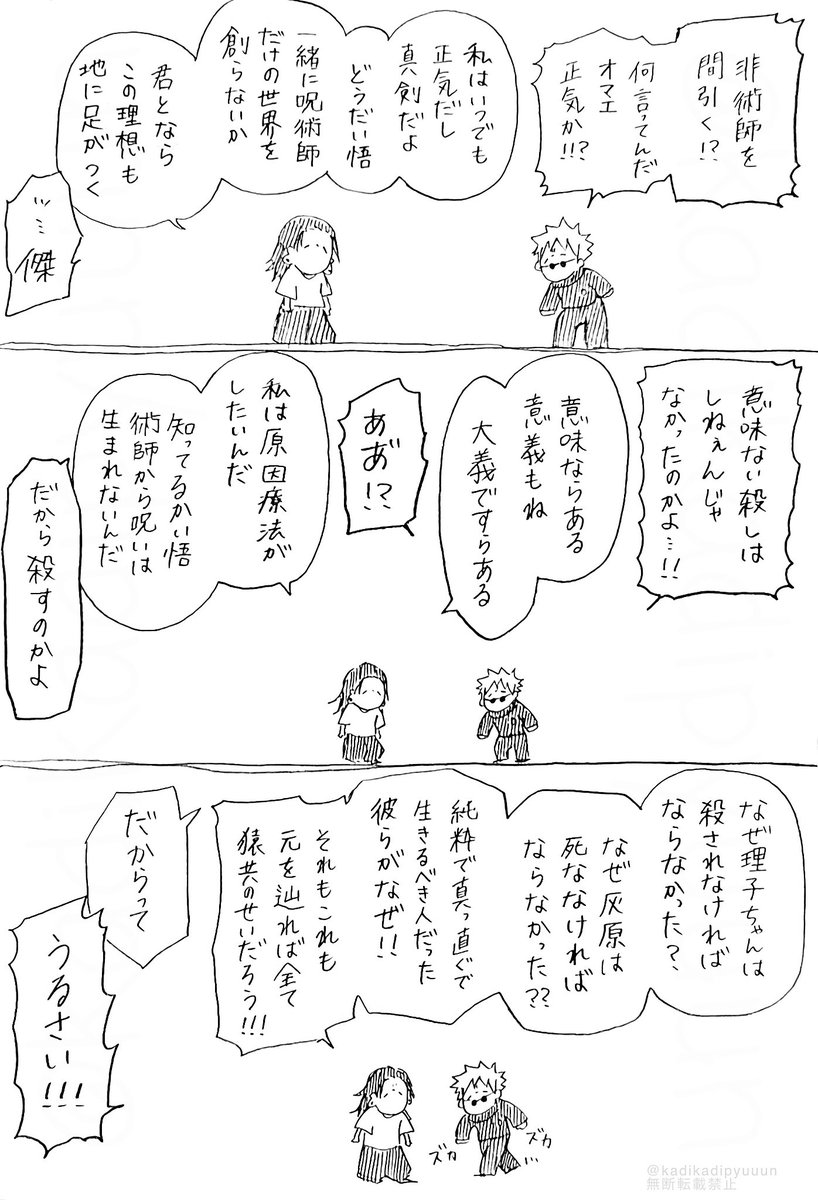 非術師を
間引く!?
何言ってんだ
オマエ
正気か!!?
私はいつでも
正気だし
真剣だよ
どうだい悟
一緒に呪術師
だけの世界を
創らないか
君となら
この理想も
地に足がつく
…傑
意味ない殺しは
しねぇんじゃ
なかったのかよ…!!
意味ならある
意義もね
大義ですらある
あ゛!?
私は原因療法が
したいんだ
知ってるかい悟
術師から呪いは
生まれないんだ
だから殺すのかよ
なぜ理子ちゃんは
殺されなければ
ならなかった?
なぜ灰原は
死ななければ
ならなかった??
純粋で真っ直ぐで
生きるべき人だった
彼らがなぜ!!
それもこれも
元を辿れば全て
猿共のせいだろう!!!
だからって
うるさい!!!
ズカ
ズカ
@kadikadipyuuun
無断転載禁止